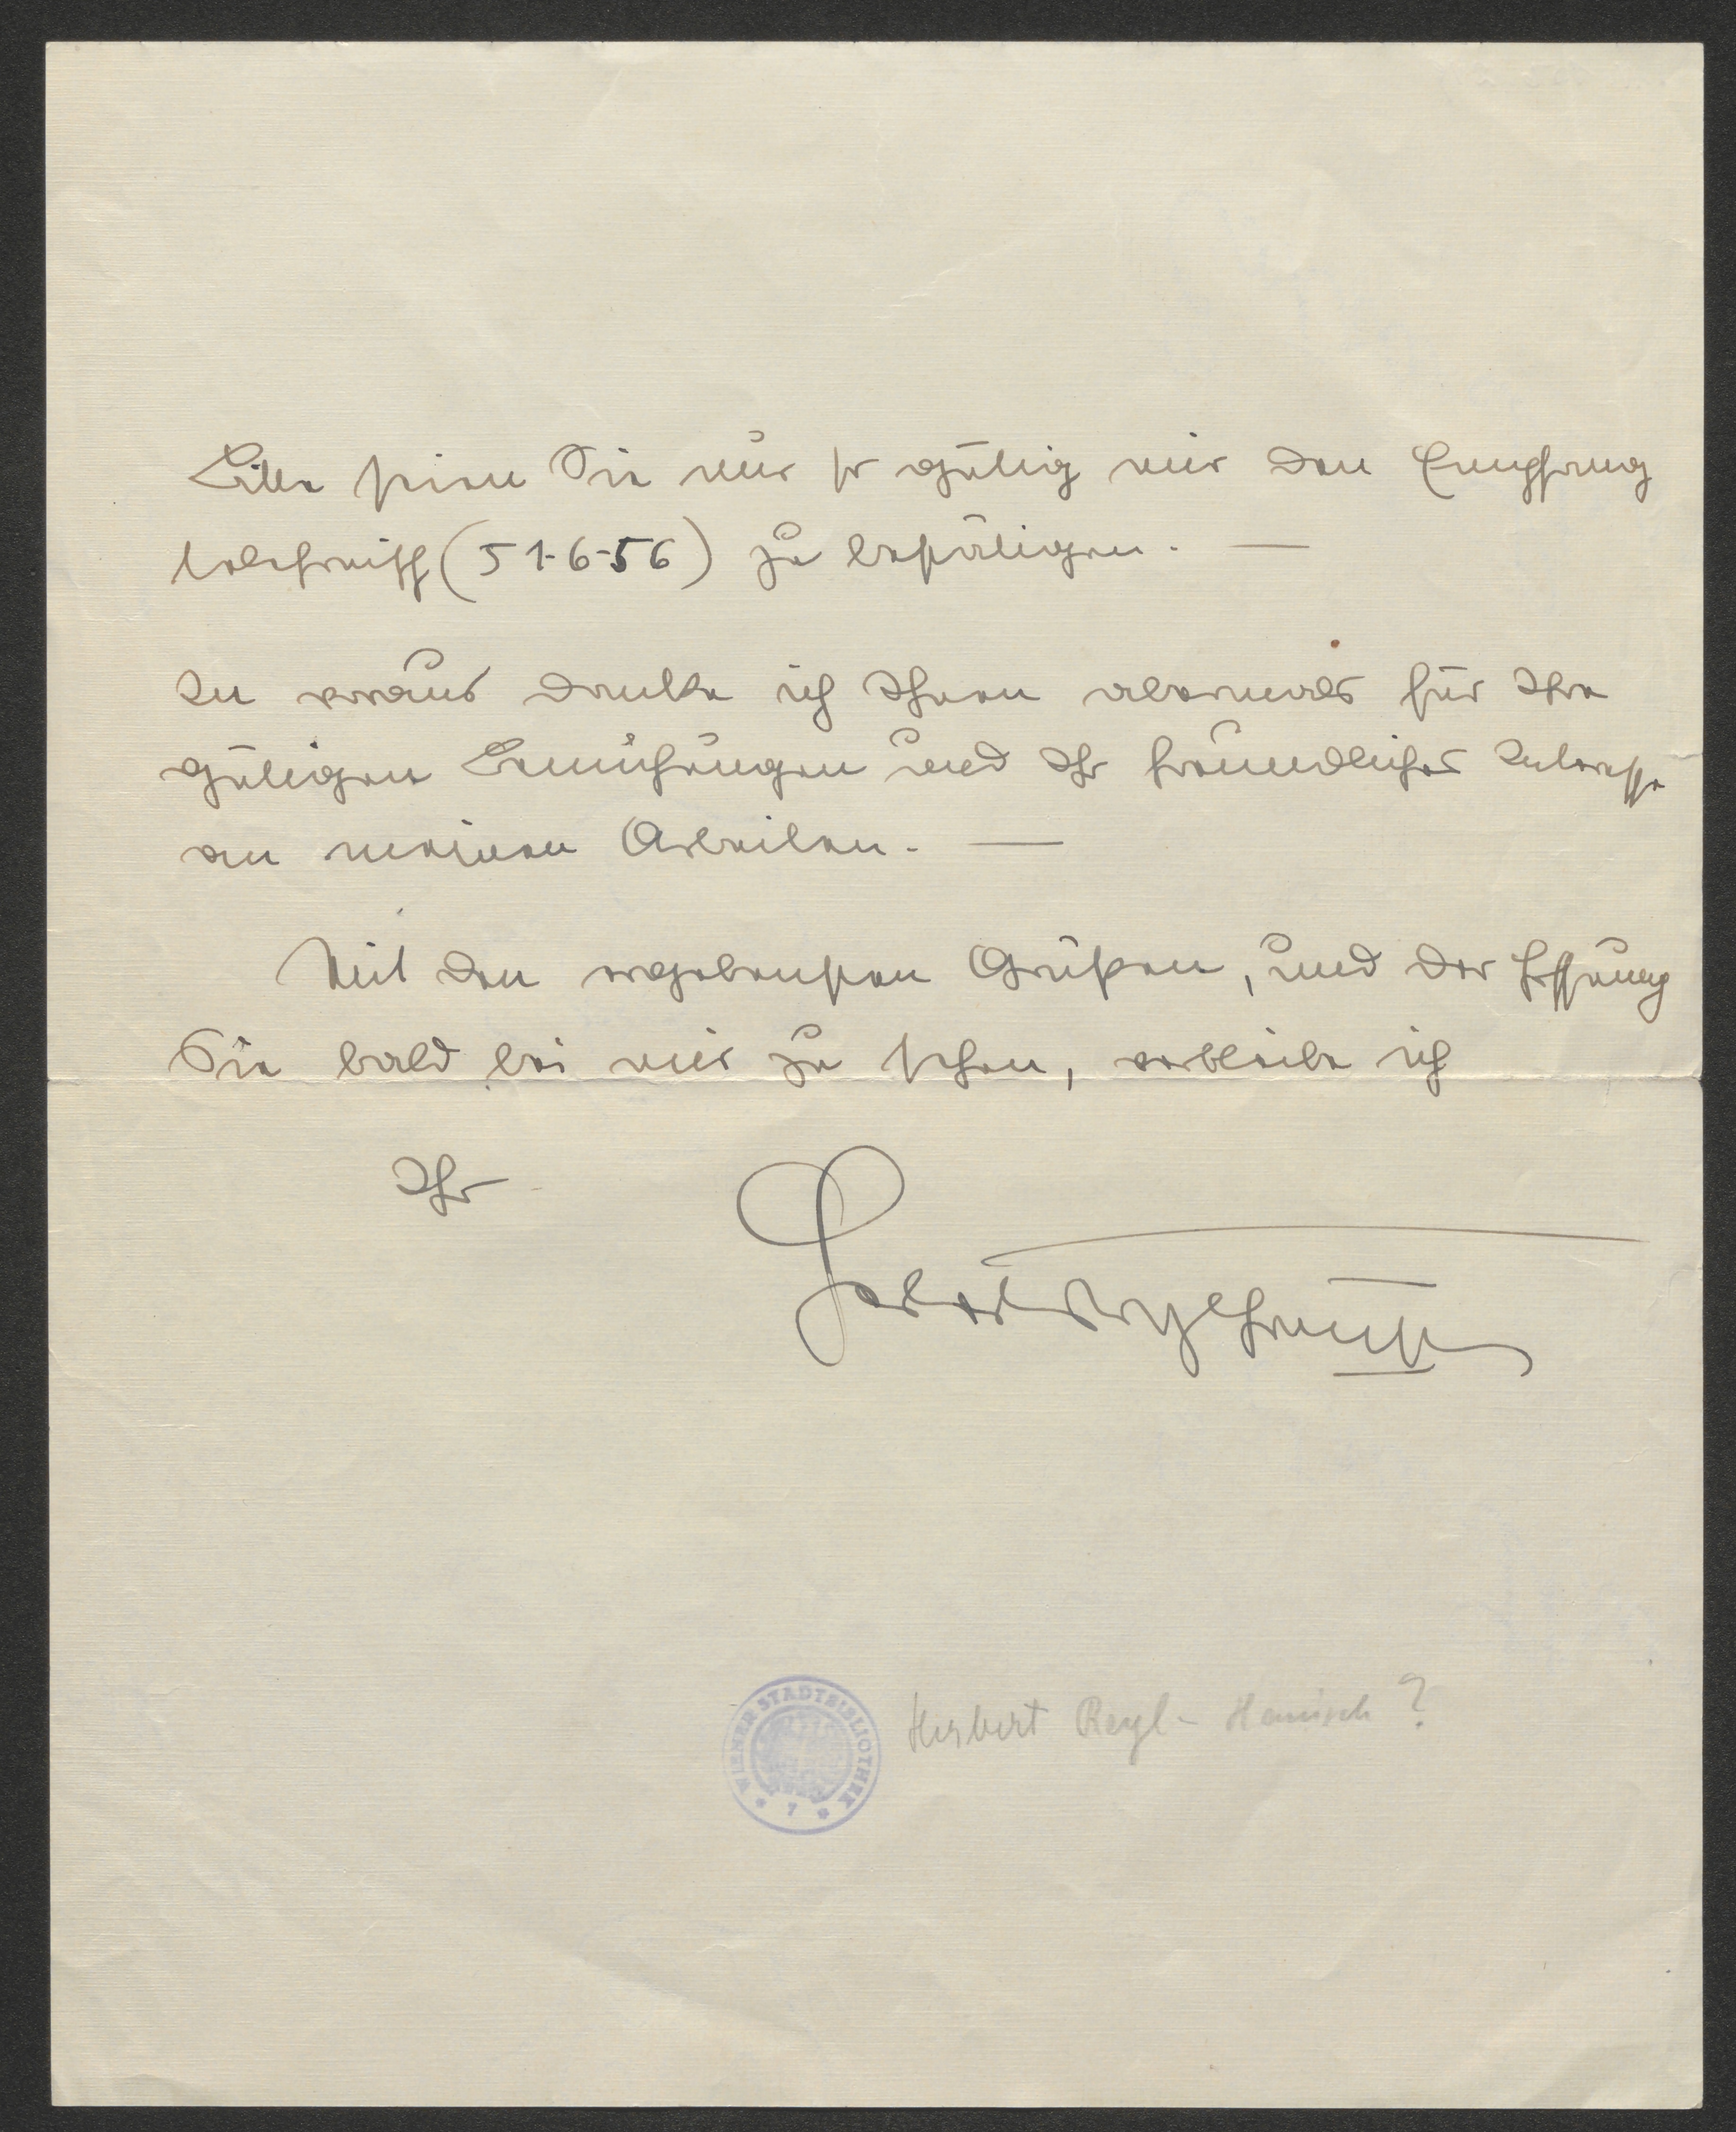 Bitte seien Sie nur so gütig mir den Empfang
telefonisch (51-6-56) zu bestätigen. —
Im voraus danke ich Ihnen abermals für Ihre
gütigen Bemühungen und Ihr freundliches Interesse
an meinen Arbeiten. —
Mit den ergebensten Grüßen, und der Hoffnung
Sie bald bei mir zu sehen, verbleibe ich
Ihr
Herbert Reylhanisch
WIENER STADTBIBLIOTHEK
* 7 *
Herbert Reyl-Hanisch?